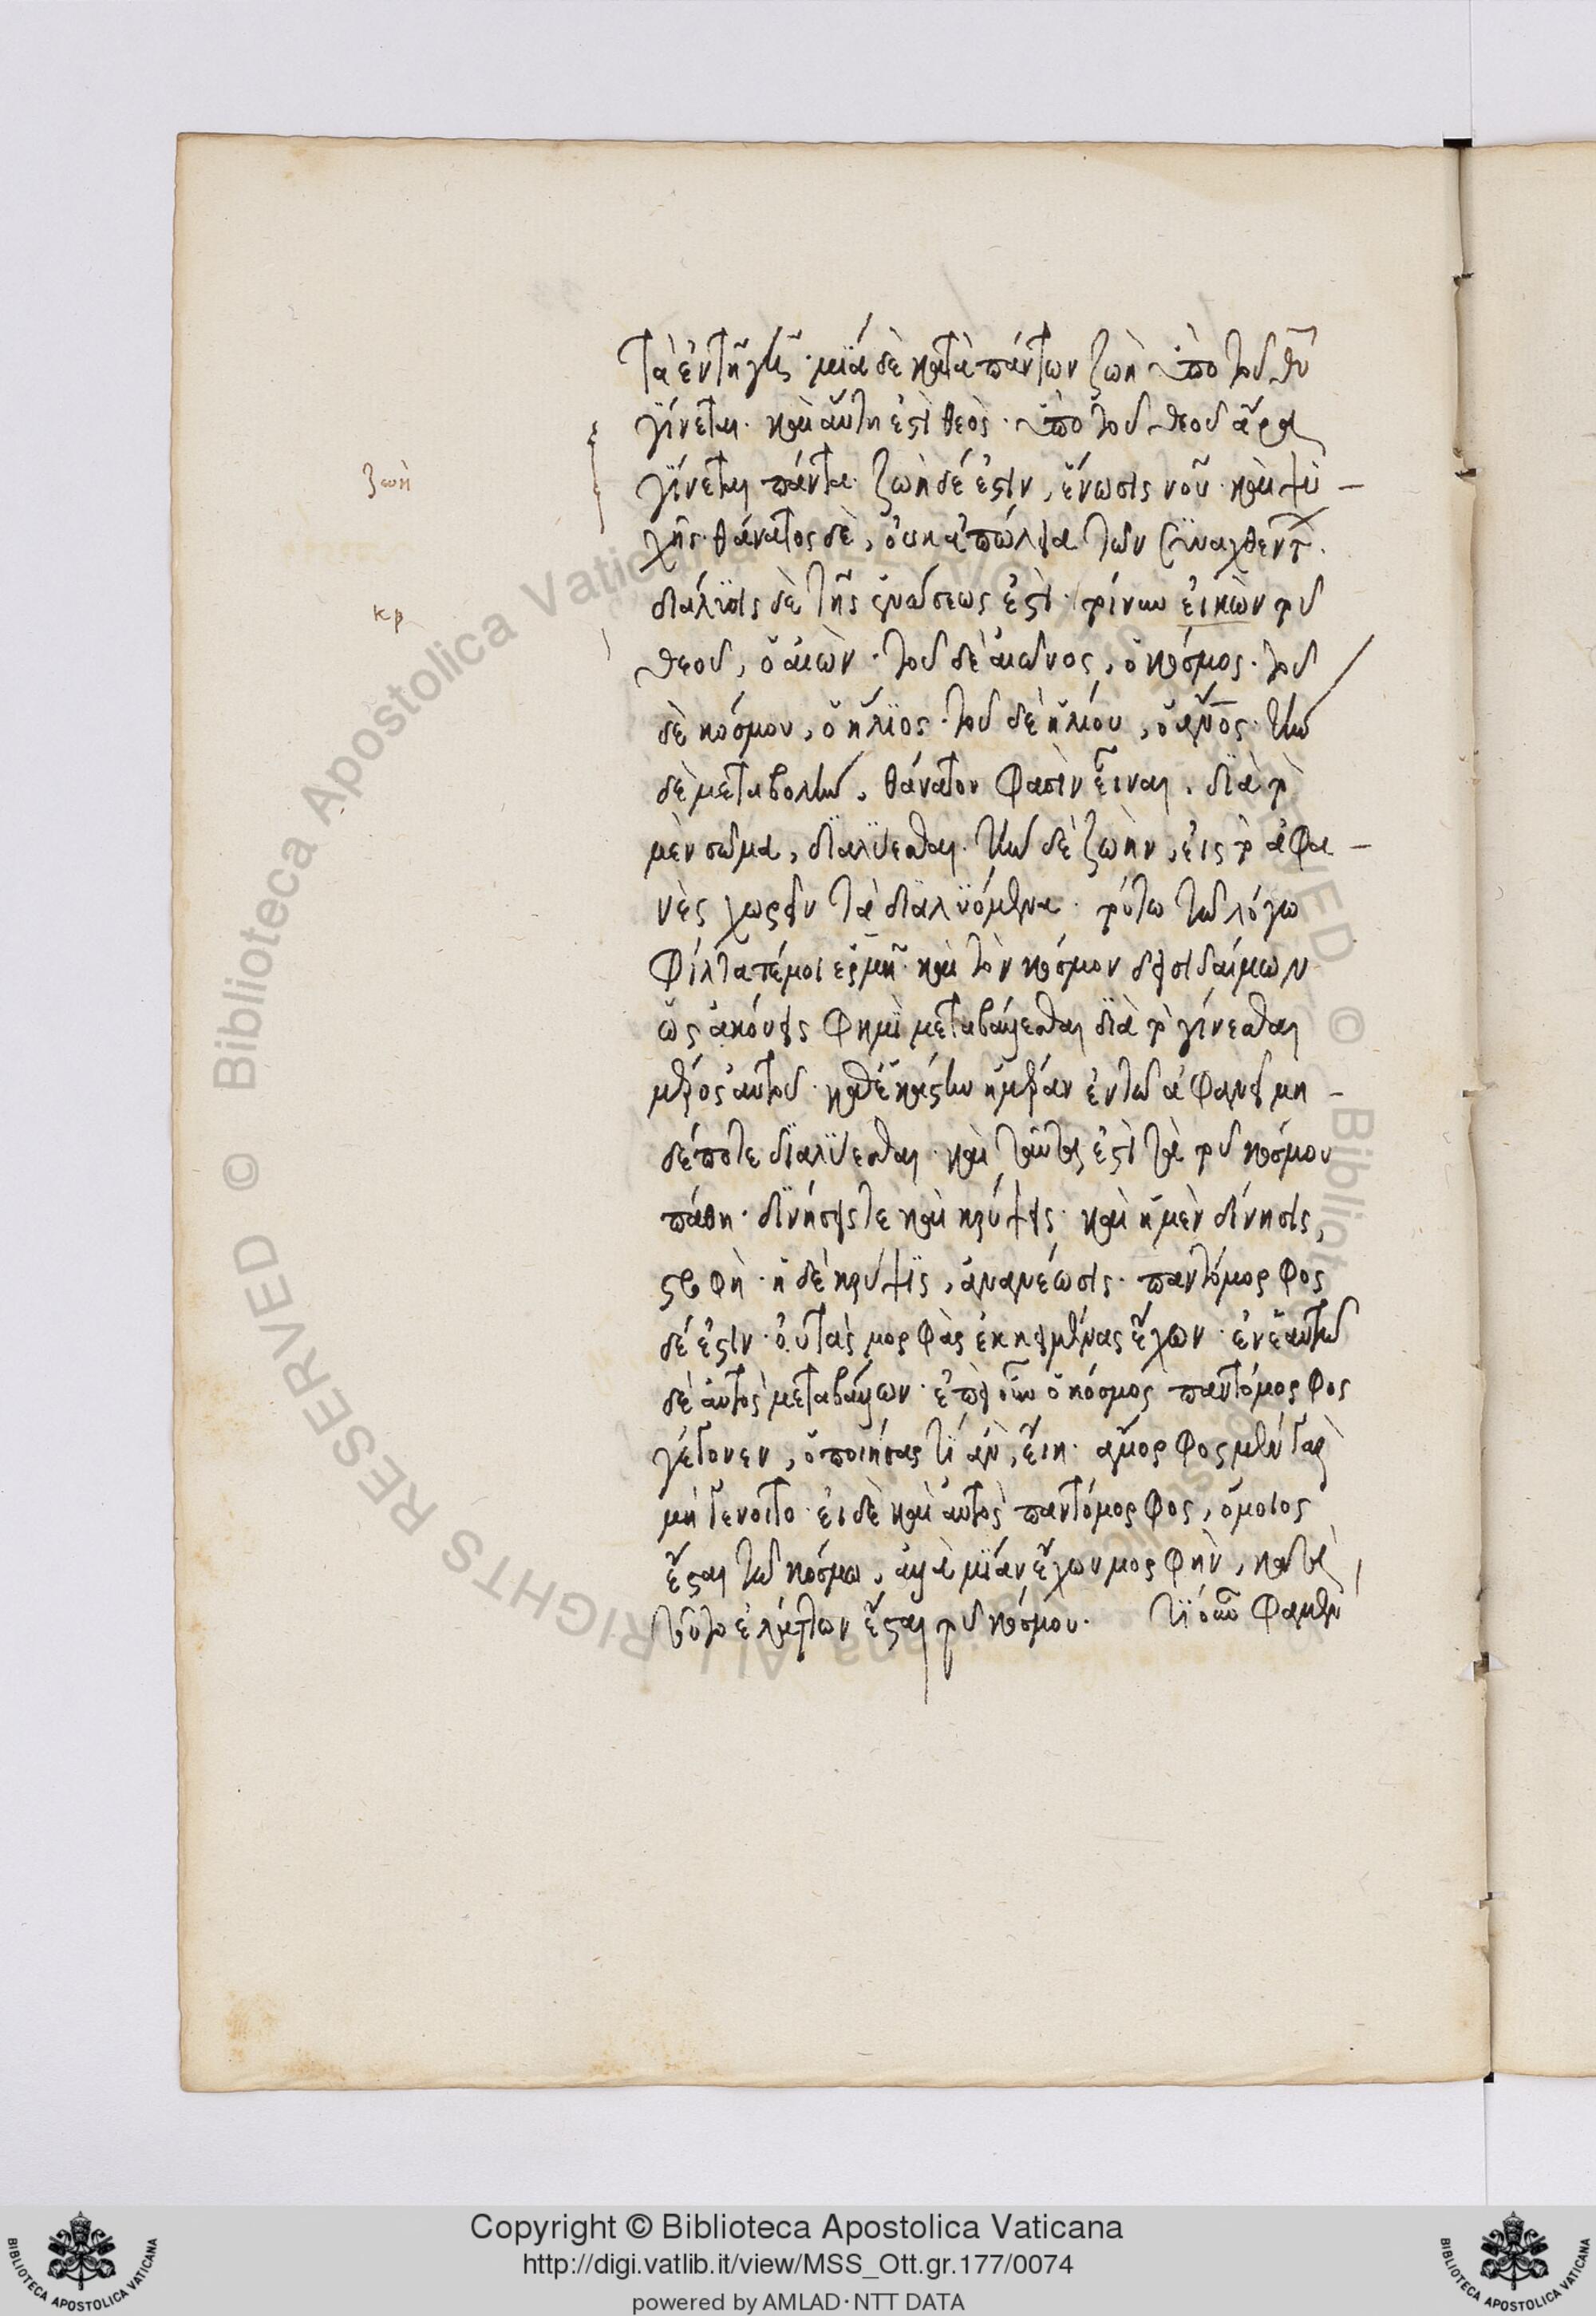 τὰ ἐν τῆ γῆ· μϊά δὲ κατὰ πάντων ζωὴ ὑπὸ τοῦ θυ
γίνεται. καὶ αὕτη ἐστὶ θεὸς· ὑπὸ τοῦ θεοῦ ἄρα
γίνεται πάντα. ζωὴ δέ ἐστιν, ἕνωσις νοῦ· καὶ ψυ-
ζωὴ
χῆς· θάνατος δὲ, οὐκ ἀπώλεια τῶν συναχθέντ.
διάλϋσις δὲ τῆς ἑνώσεως ἐστὶ· τοίνυν εἰκὼν τοῦ
κρ
θεοῦ, ὁ αἰὼν· τοῦ δὲ αἰῶνος, ὁ κόσμος· τοῦ
δὲ κόσμου, ὁ ἥλϊος· τοῦ δὲ ἡλίου, ὁ ανος· τὴν
δὲ μεταβολὴν, θάνατον φασὶν εἶναι. δϊὰ τὸ
μὲν σῶμα, δϊαλϋεσθαι. τὴν δὲ ζωὴν, εἰς τὸ ἀφα-
νὲς χωρεῖν τὰ δϊαλϋόμενα· τούτω τῶ λόγω
φίλτατέ μοι ἑρμῆ· καὶ τὸν κόσμον δεισιδαίμων
ὡς ἀκούεις φημὶ μεταβάλλεσθαι δϊὰ τὸ γίνεσθαι
μέρος αὐτοῦ· καθ ἑκάστην ἡμέραν ἐν τῶ ἀφανεῖ μη-
δέποτε δϊαλϋεσθαι· καὶ ταῦτα ἐστὶ τὰ τοῦ κόσμου
πάθη· δϊνήσεις τε καὶ κρύψεις· καὶ ἡ μὲν δίνησις,
στροφὴ· ἡ δὲ κρύψϊς, ἀνανέωσις· παντόμορφος
δέ ἐστιν· οὐ τὰς μορφὰς ἐκκειμένας ἔχων· ἐν ἑαυτῶ
δὲ αὐτὸς μεταβάλλων· ἐπεὶ οὖν ὁ κόσμος παντόμορφος
γέγονεν, ὁ ποιήσας τί ἂν, εἴη· ἄμορφος μὲν γὰρ
μὴ γένοιτο· εἰ δὲ καὶ αὐτὸς παντόμορφος, ὅμοιος
ἔσται τῶ κόσμω, ἀλλὰ μϊὰν ἔχων μορφὴν, κατὰ
τοῦτο ἐλάττων ἔσται τοῦ κόσμου. τί οὖν φαμὲν
Copyright © Biblioteca Apostolica Vaticana
http://digi.vatlib.it/view/MSS_Ott.gr.177/0074
powered by AMLAD·NTT DATA